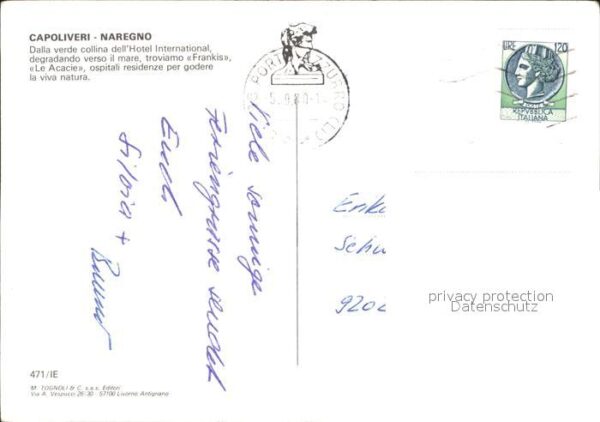 CAPOLIVERI - NAREGNO
Dalla verde collina dell'Hotel International,
degradando verso il mare, troviamo «Frankis»,
«Le Acacie», ospitali residenze per godere
la viva natura.
PORTO AZZURRO (LI)
5.9.80
LIRE 120
REPVBBLICA
ITALIANA
Viele sonnige
Feriengrüsse sendet
Euch
Silvia +
Bruno
Schu
privacy protection
Datenschutz
471/IE
M. TOGNOLI & C. s.a.s. Editori
Via A. Vespucci 28-30 - 57100 Livorno Antignano